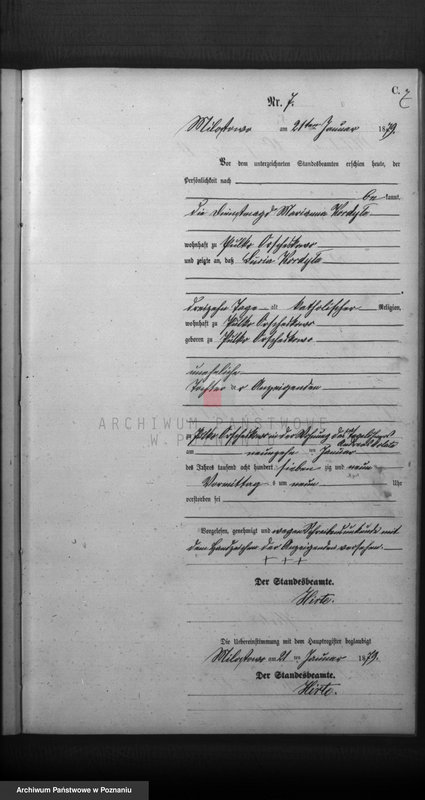 C. 7
Nr. 7.
Milostowo am 21ten Januar 1879.
Vor dem unterzeichneten Standesbeamten erschien heute, der
Persönlichkeit nach
be kannt,
die Dienstmagd Marianna Kordyla
wohnhaft zu
und zeigte an, daß Kordyla
dreizehn Tage alt katholischer Religion,
wohnhaft zu
geboren zu
uneheliche
Tochter der Anzeigenden
ARCHIWUM PAŃSTWOWE
W P
zu in der Wohnung des
am neunzehn ten Januar
des Jahres tausend acht hundert sieben zig und neun
Vormittag s um neun Uhr
verstorben sei
Vorgelesen, genehmigt und wegen Schreibensunkunde mit
dem Handzeichen der Anzeigenden versehen.
+ + +
Der Standesbeamte.
Hirte.
Die Uebereinstimmung mit dem Hauptregister beglaubigt
Milostowo am 21 ten Januar 1879.
Der Standesbeamte.
Hirte.
Archiwum Państwowe w Poznaniu